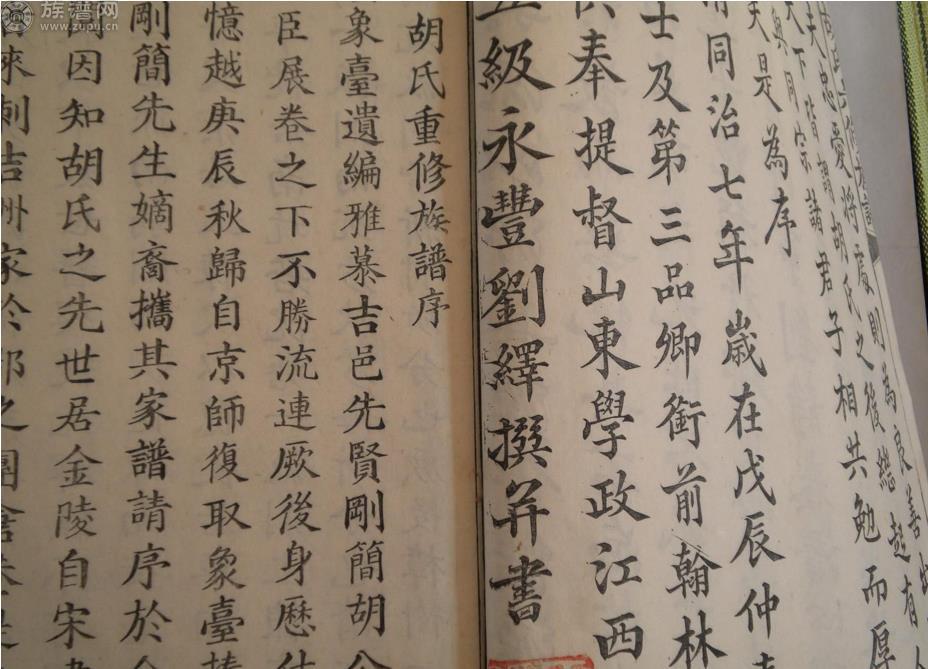 族谱网
www.zupu.cn
忠愛將
則為良善
夫
謂胡氏之後總
起有
天下同宗諸君子相共勉而厚
夫是為序
同治七年歲在戊辰仲
士及第三品卿銜前翰林
供奉提督山東學政江西
五級永豐劉繹撰并書
胡氏重修族譜序
象臺遺編雅慕吉邑先賢剛簡胡公
臣展卷之下不勝流連厥後身歷仕
憶越庚辰秋歸自京師復取象臺
剛簡先生嫡裔攜其家譜請序於
因知胡氏之先世居金陵自宋
來刺吉州家於郡之